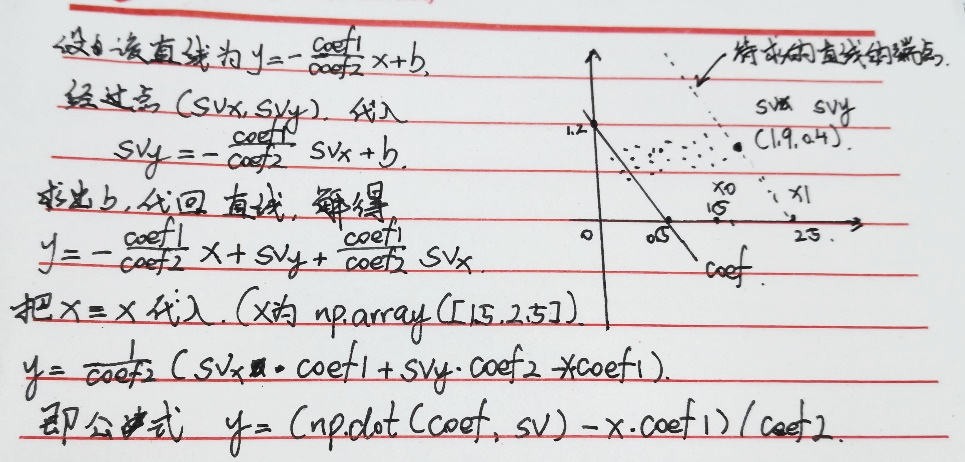 设该直线为 y=-coef1/coef2 x+b,
经过点 (SVx, SVy), 代入
SVy=-coef1/coef2 SVx+b.
求出b,代回直线,解得
y=-coef1/coef2 x+SVy+coef1/coef2 SVx.
把x=x代入.(x为 np.array([1.5,2.5])
y=1/coef2 (SVx·coef1+SVy·coef2-x coef1).
即公式 y=(np.dot(coef, SV)-x·coef1)/coef2.
待求的直线的端点.
SVx SVy
(1.9,0.4).
1.2
x0
x1
1.5
0
0.5
2.5
coef